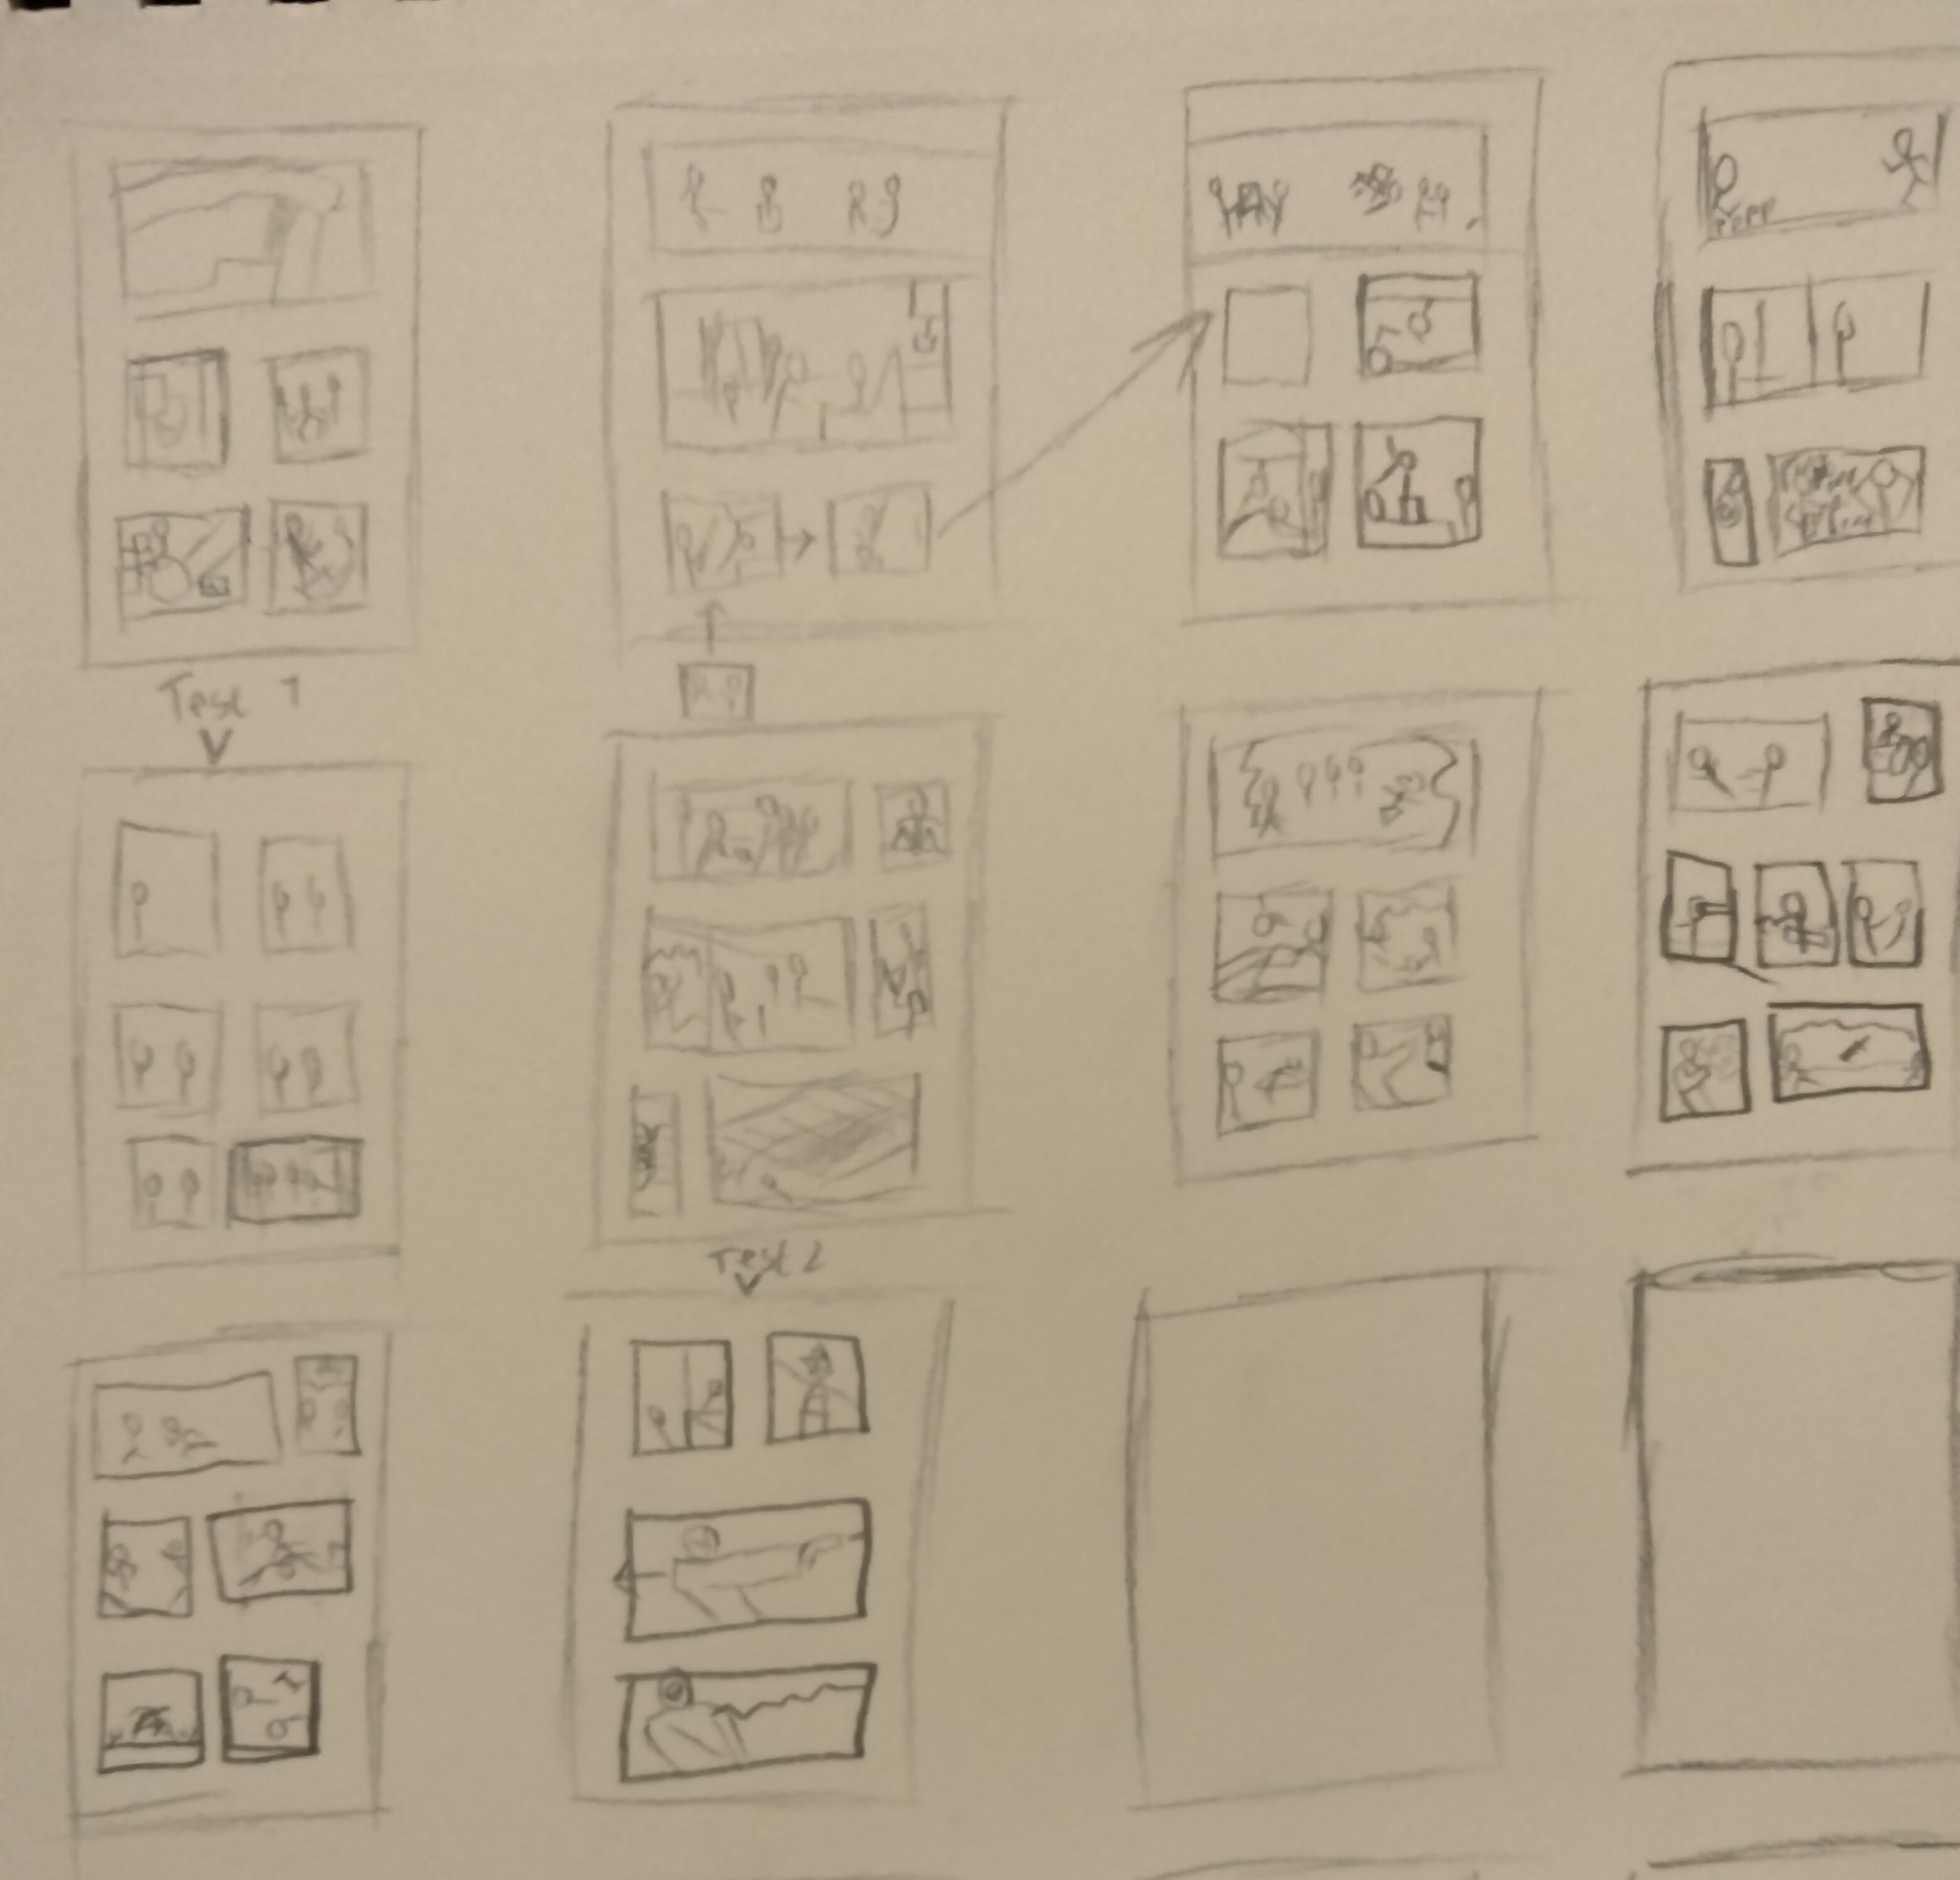 Test 1
Test 2